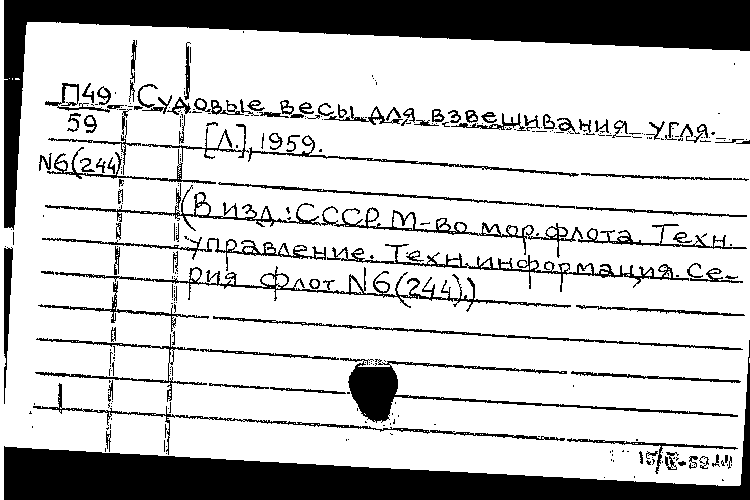 П49 Судовые весы для взвешивания угля.
59 [Л.], 1959.
N6(244)
(В изд.: СССР. М-во мор. флота. Техн.
управление. Техн. информация. Се-
рия флот. N6(244).)
1
15/IV-59